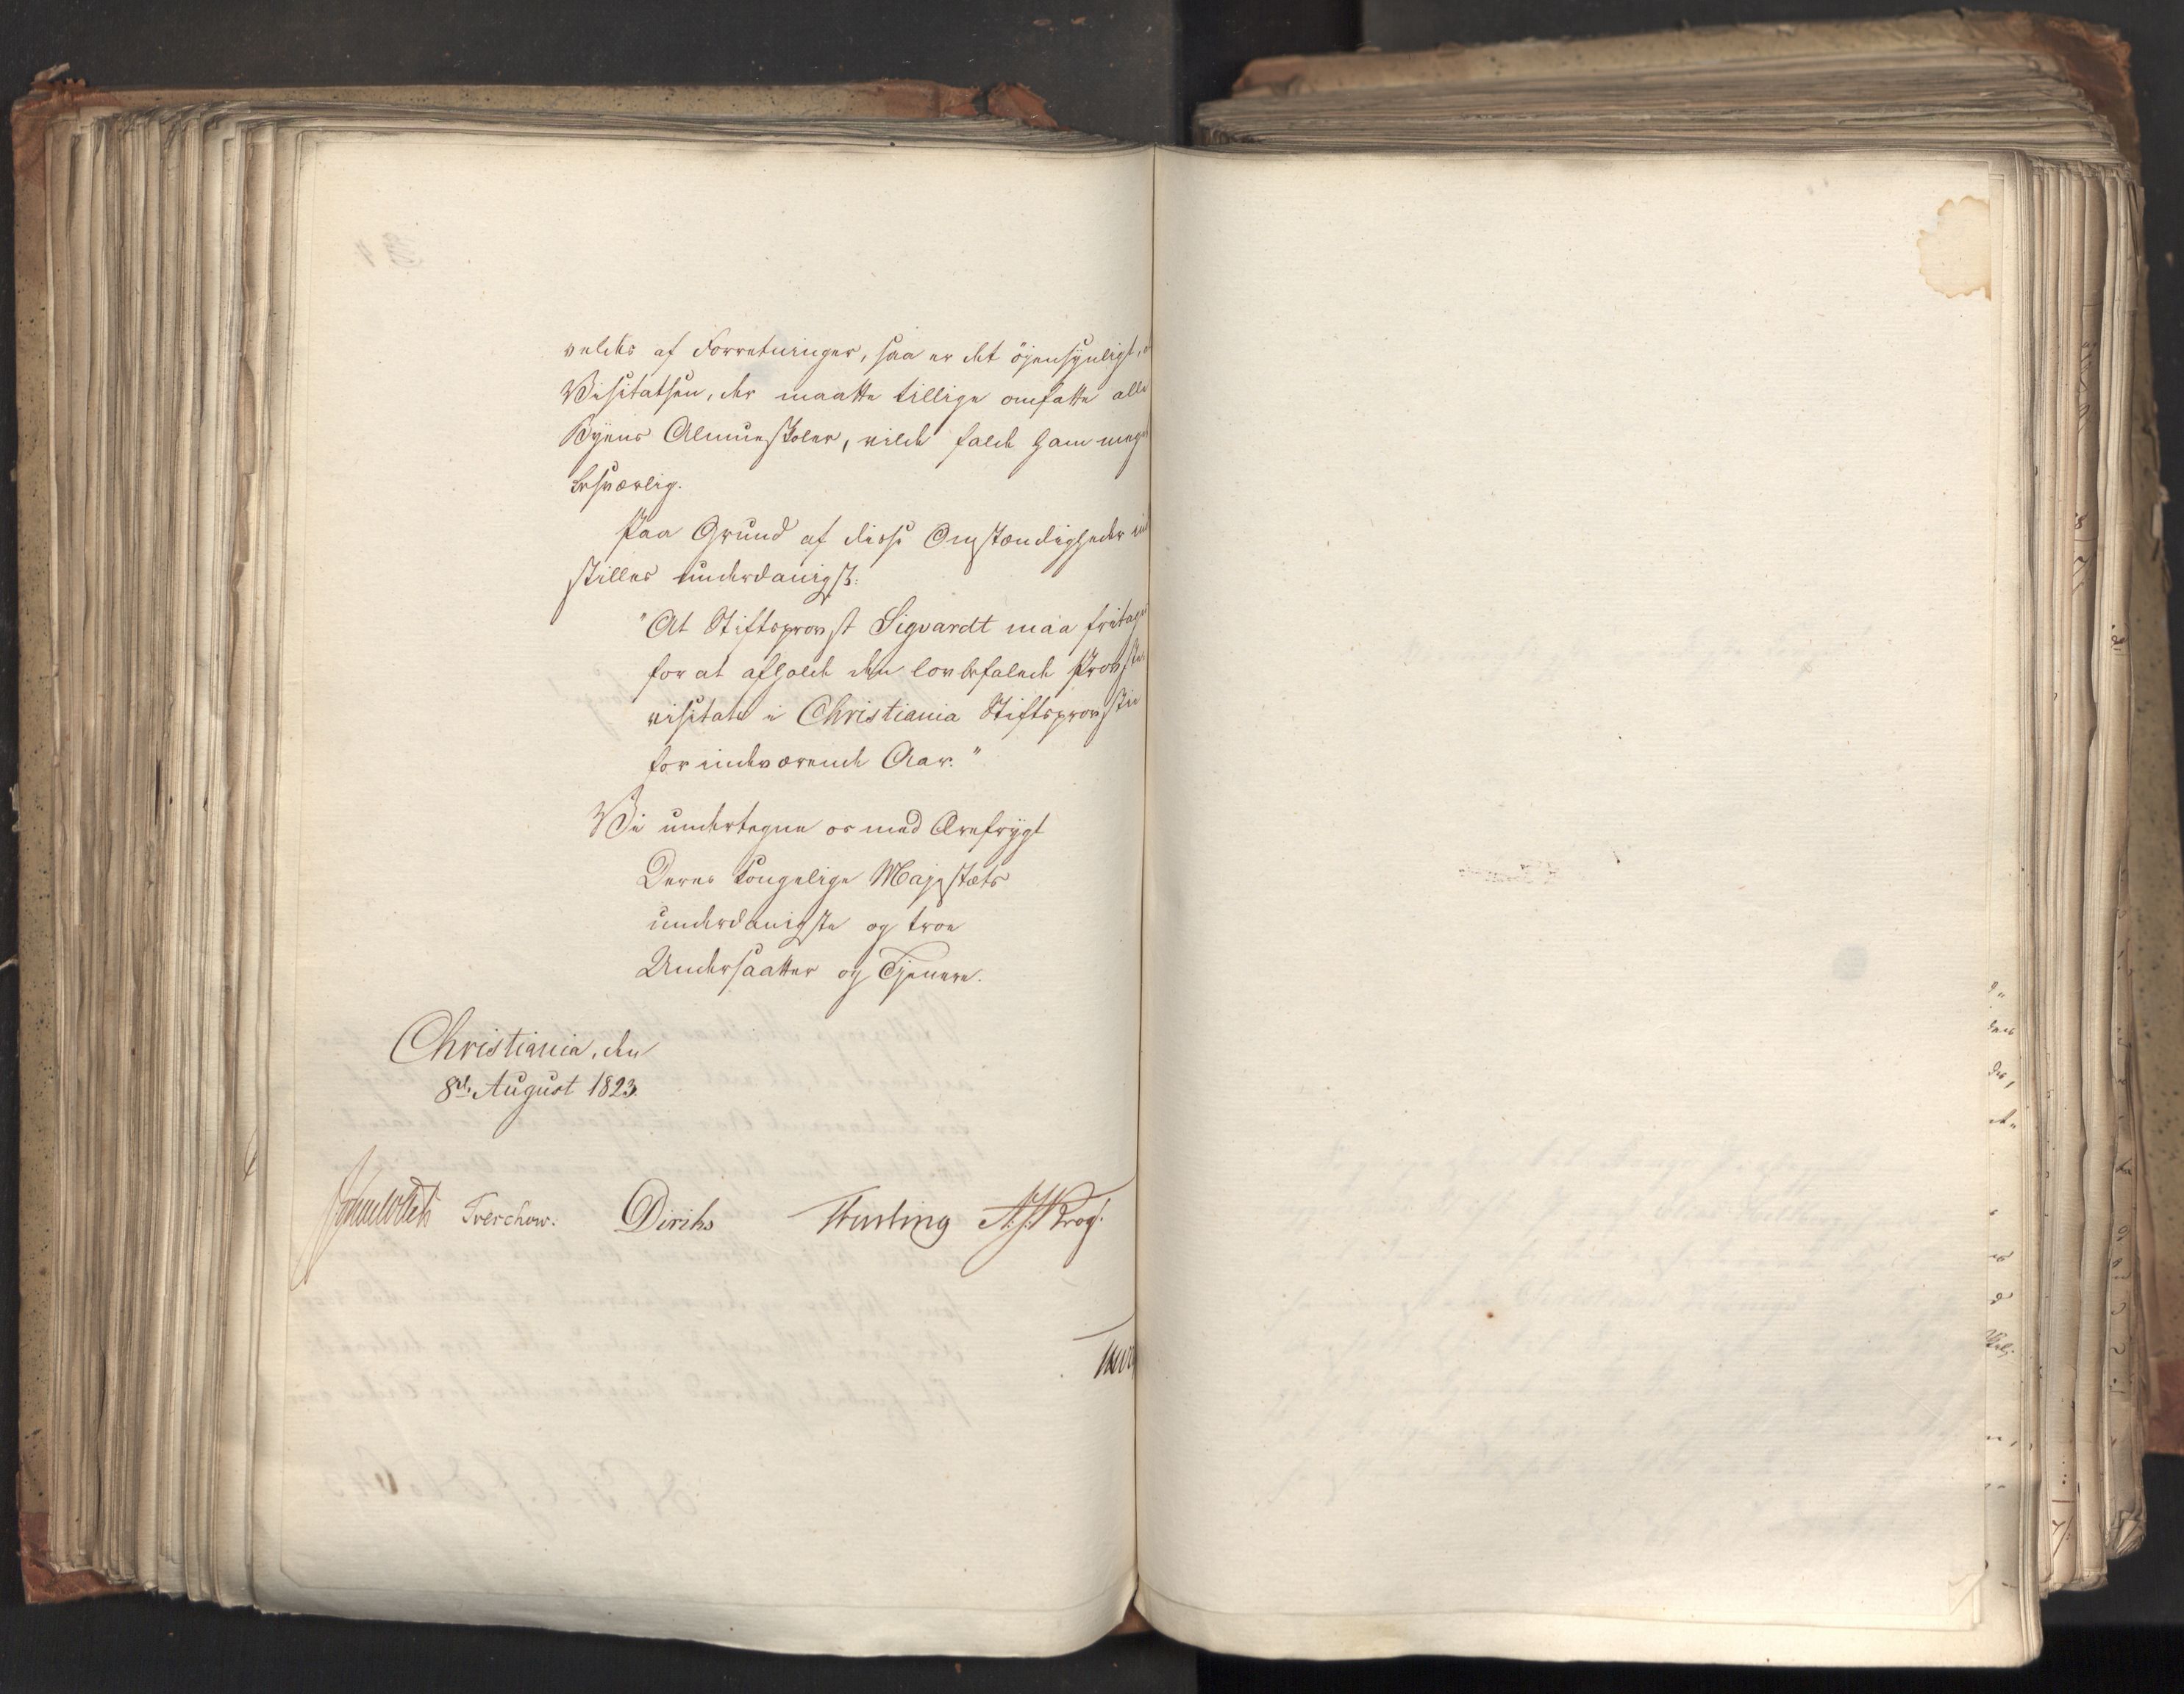 veldes af Forretninger, saa er det öjensynligt,
Visitatsen, der maatte tillige omfatte alle
Byens Almueskoler, vilde falde ham meget
besværlig.
Paa Grund af disse Omstændigheder ind
stilles underdanigst:
"At Stiftsprovst Sigvardt maa fritages
for at afholde den lovbefalede Provste
visitats i Christiania Stiftsprovstie
for indeværende Aar."
Vi undertegne os med Ærefrygt
Deres Kongelige Majestæts
underdanigste og troe
Undersaatter og Tjenere.
Christiania, den
8de August 1823.
Sommerhielm Treschow. Diriks Fasting A. J. Krog.